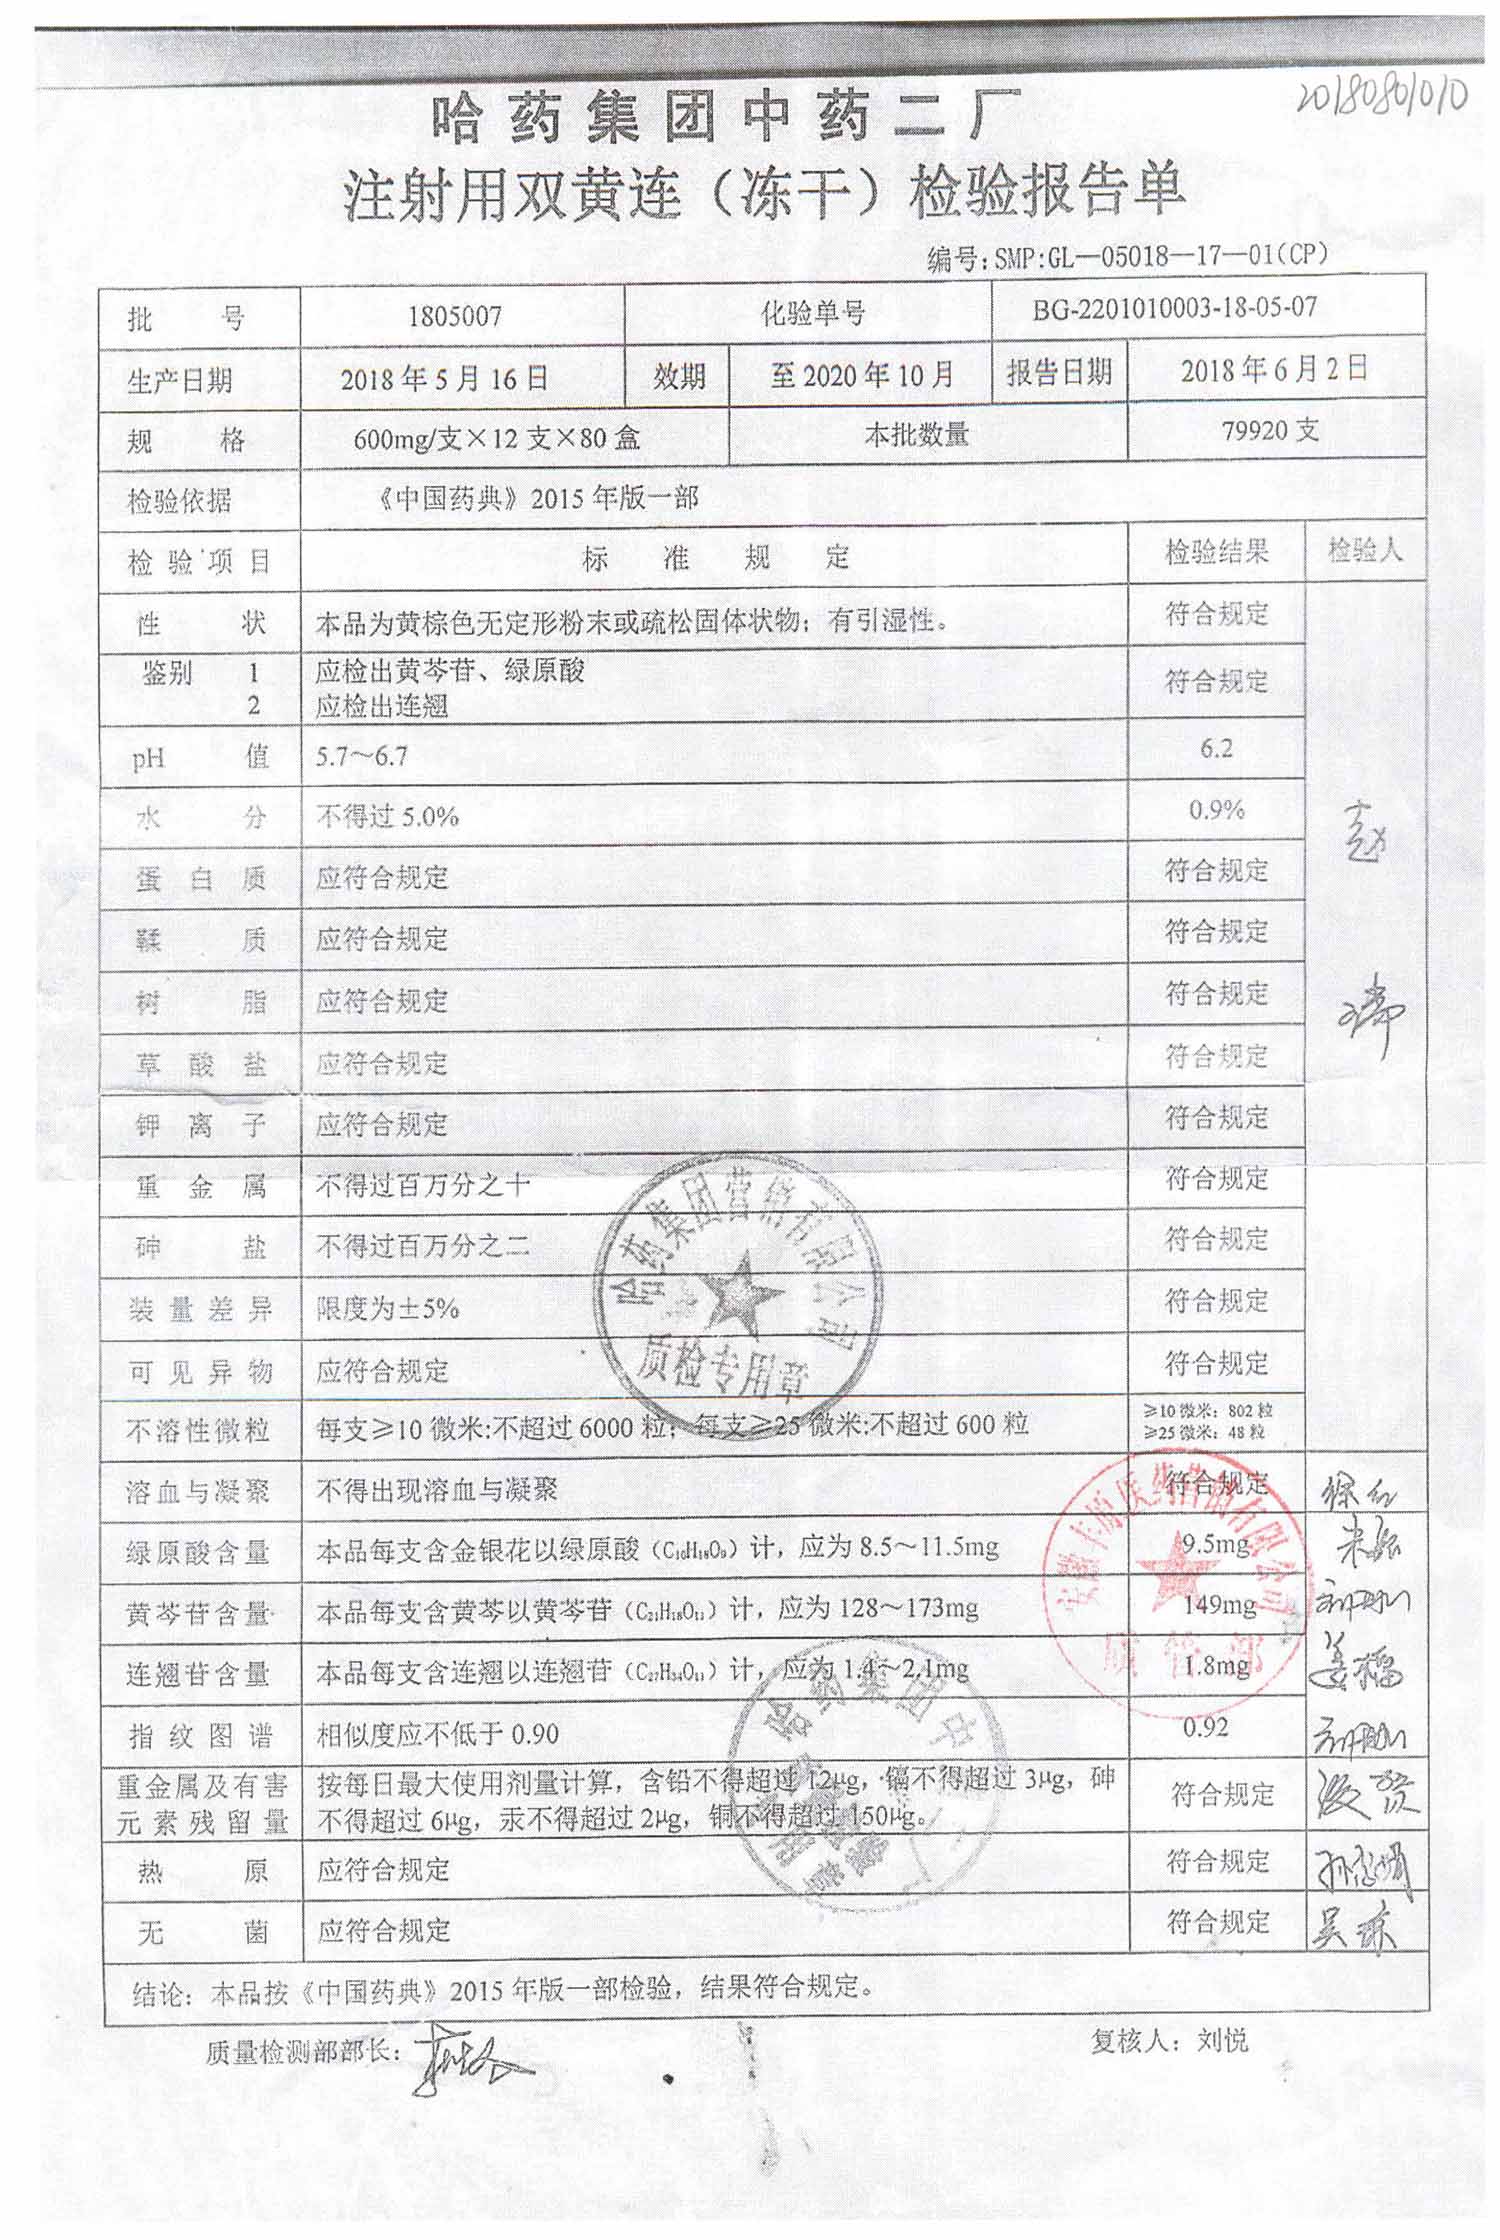 20180801010
哈药集团中药二厂
注射用双黄连（冻干）检验报告单
编号：SMP:GL—05018—17—01(CP)
批 号 1805007 化验单号 BG-2201010003-18-05-07
生产日期 2018年5月16日 效期 至2020年10月 报告日期 2018年6月2日
规 格 600mg/支×12支×80盒 本批数量 79920支
检验依据 《中国药典》2015年版一部
检验项目 标准规定 检验结果 检验人
性 状 本品为黄棕色无定形粉末或疏松固体状物；有引湿性。 符合规定
鉴别 1 应检出黄芩苷、绿原酸 符合规定
2 应检出连翘
pH 值 5.7～6.7 6.2
水 分 不得过5.0% 0.9%
蛋白质 应符合规定 符合规定
鞣 质 应符合规定 符合规定
树 脂 应符合规定 符合规定
草酸盐 应符合规定 符合规定
钾离子 应符合规定 符合规定
重金属 不得过百万分之十 符合规定
砷 盐 不得过百万分之二 符合规定
装量差异 限度为±5% 符合规定
可见异物 应符合规定 符合规定
不溶性微粒 每支≥10微米:不超过6000粒；每支≥25微米:不超过600粒 ≥10微米：802粒
≥25微米：48粒
溶血与凝聚 不得出现溶血与凝聚 符合规定
绿原酸含量 本品每支含金银花以绿原酸（C₁₆H₁₈O₉）计，应为8.5～11.5mg 9.5mg
黄芩苷含量 本品每支含黄芩以黄芩苷（C₂₁H₁₈O₁₁）计，应为128～173mg 149mg
连翘苷含量 本品每支含连翘以连翘苷（C₂₇H₃₄O₁₁）计，应为1.4～2.1mg 1.8mg
指纹图谱 相似度应不低于0.90 0.92
重金属及有害 按每日最大使用剂量计算，含铅不得超过12μg，镉不得超过3μg，砷 符合规定
元素残留量 不得超过6μg，汞不得超过2μg，铜不得超过150μg。
热 原 应符合规定 符合规定
无 菌 应符合规定 符合规定 吴琼
结论：本品按《中国药典》2015年版一部检验，结果符合规定。
质量检测部部长： 复核人：刘悦
哈药集团营销有限公司
质检专用章
安徽丰原医药营销有限公司
质管部
哈药集团中